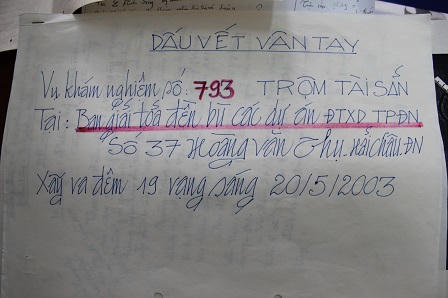 DẤU VẾT VÂN TAY
Vụ khám nghiệm số: 793 TRỘM TÀI SẢN
Tại: Ban giải toả đền bù các dự án ĐTXD TPĐN
Số 37 Hoàng Văn Thụ - Hải Châu - ĐN
Xảy ra đêm 19 rạng sáng 20/5/2003